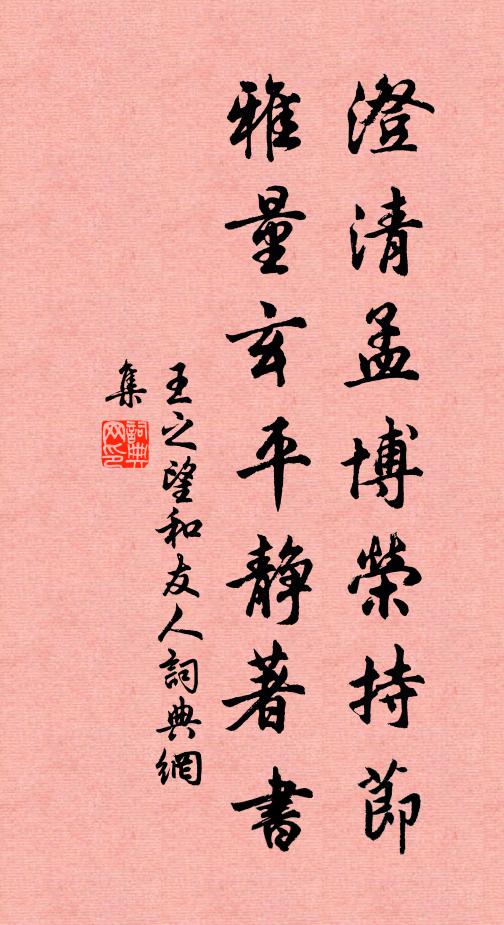 澄清孟博榮持節
雅量玄平靜著書
王之望和友人詞典網
集
詞典
网印